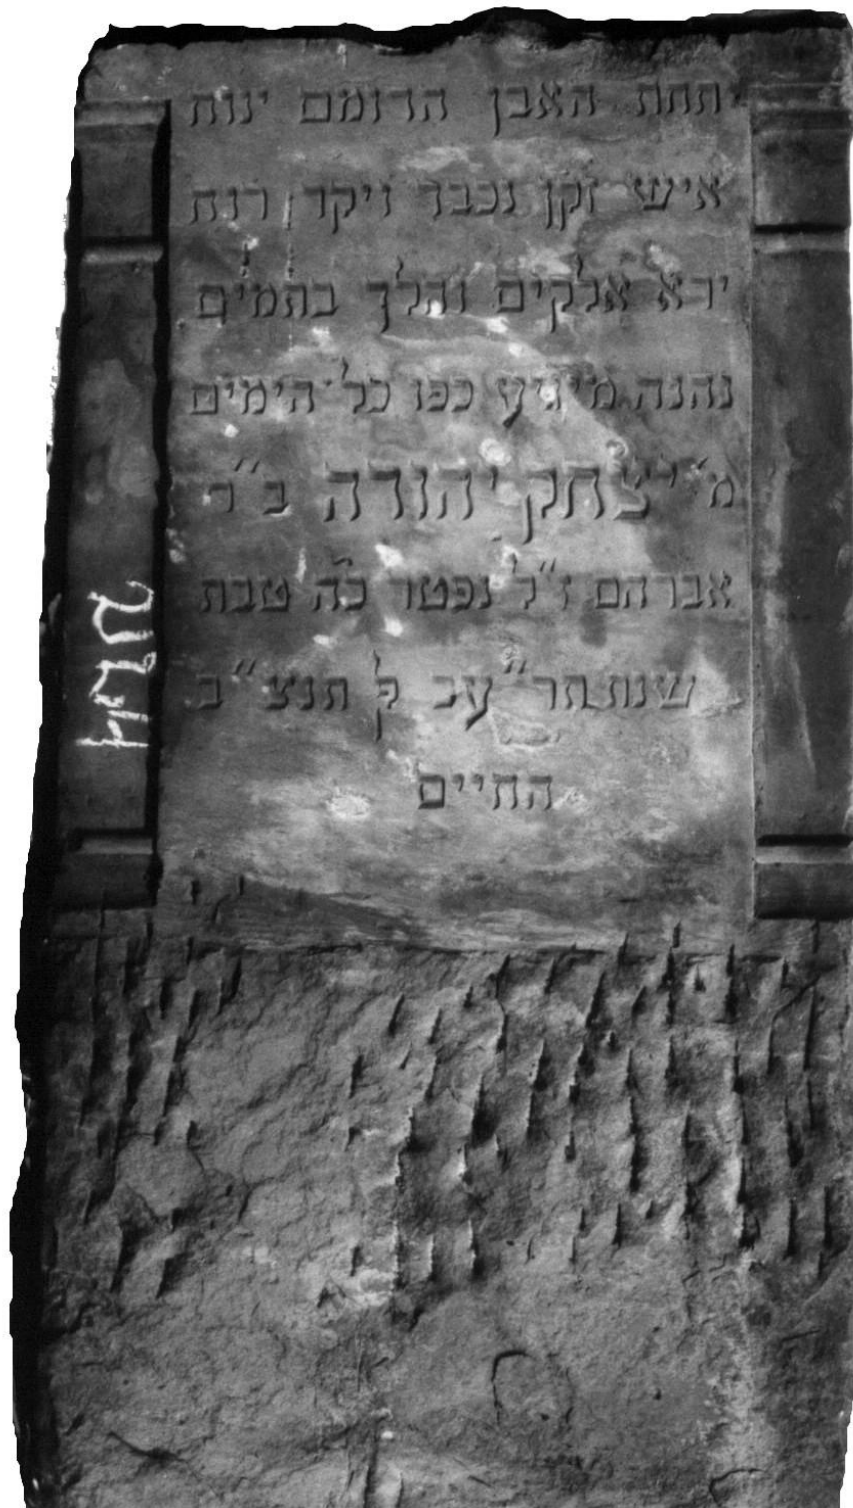 תחת האבן הדומם ינוח
איש זקן נכבד ויקר רוח
ירא אלקים והלך בתמים
נהנה מיגיע כפו כל הימים
מ' יצחק יהודה ב"ר
אברהם ז"ל נפטר כ"ה טבת
שנת תר"עב לק תנצ"ב
החיים